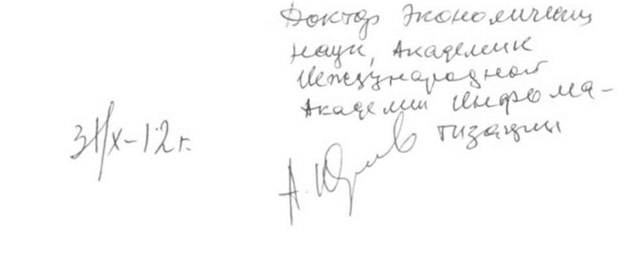 Доктор Экономических
наук, Академик
Международной
Академии Информа-
тизации
31/X-12г.
А.